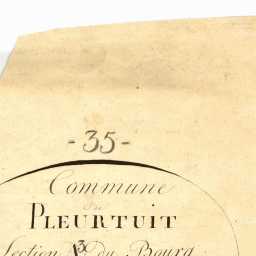 - 35 -
Commune
de
PLEURTUIT
Section du Bourg